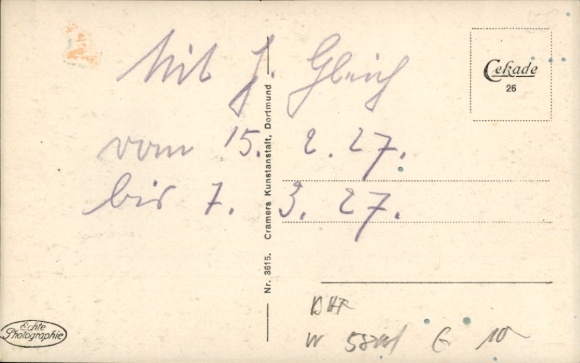 Mit J. Gleich
vom 15. 2. 27.
bis 7. 3. 27.
Cekade
26
Nr. 3615. Cramers Kunstanstalt, Dortmund
Echte
Photographie
10